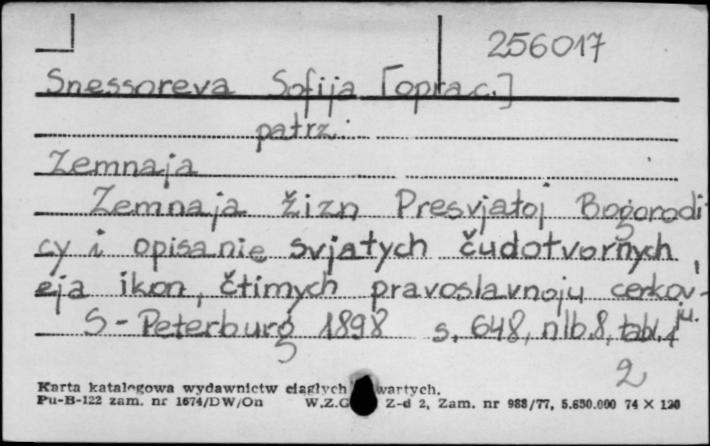 256017
Snessoreva Sofija [oprac.]
patrz:
Zemnaja
Zemnaja žizn Presvjatoj Bogorodi
cy i opisanie svjatych čudotvornych
eja ikon, čtimych pravoslavnoju cerkov'-
ju.
S-Peterburg 1898 s. 648, nlb. 8, tabl. 1
2
Karta katalogowa wydawnictw ciągłych wartych.
Pu-B-122 zam. nr 1674/DW/On W.Z.G Z-d 2, Zam. nr 988/77, 5.650.000 74 X 120